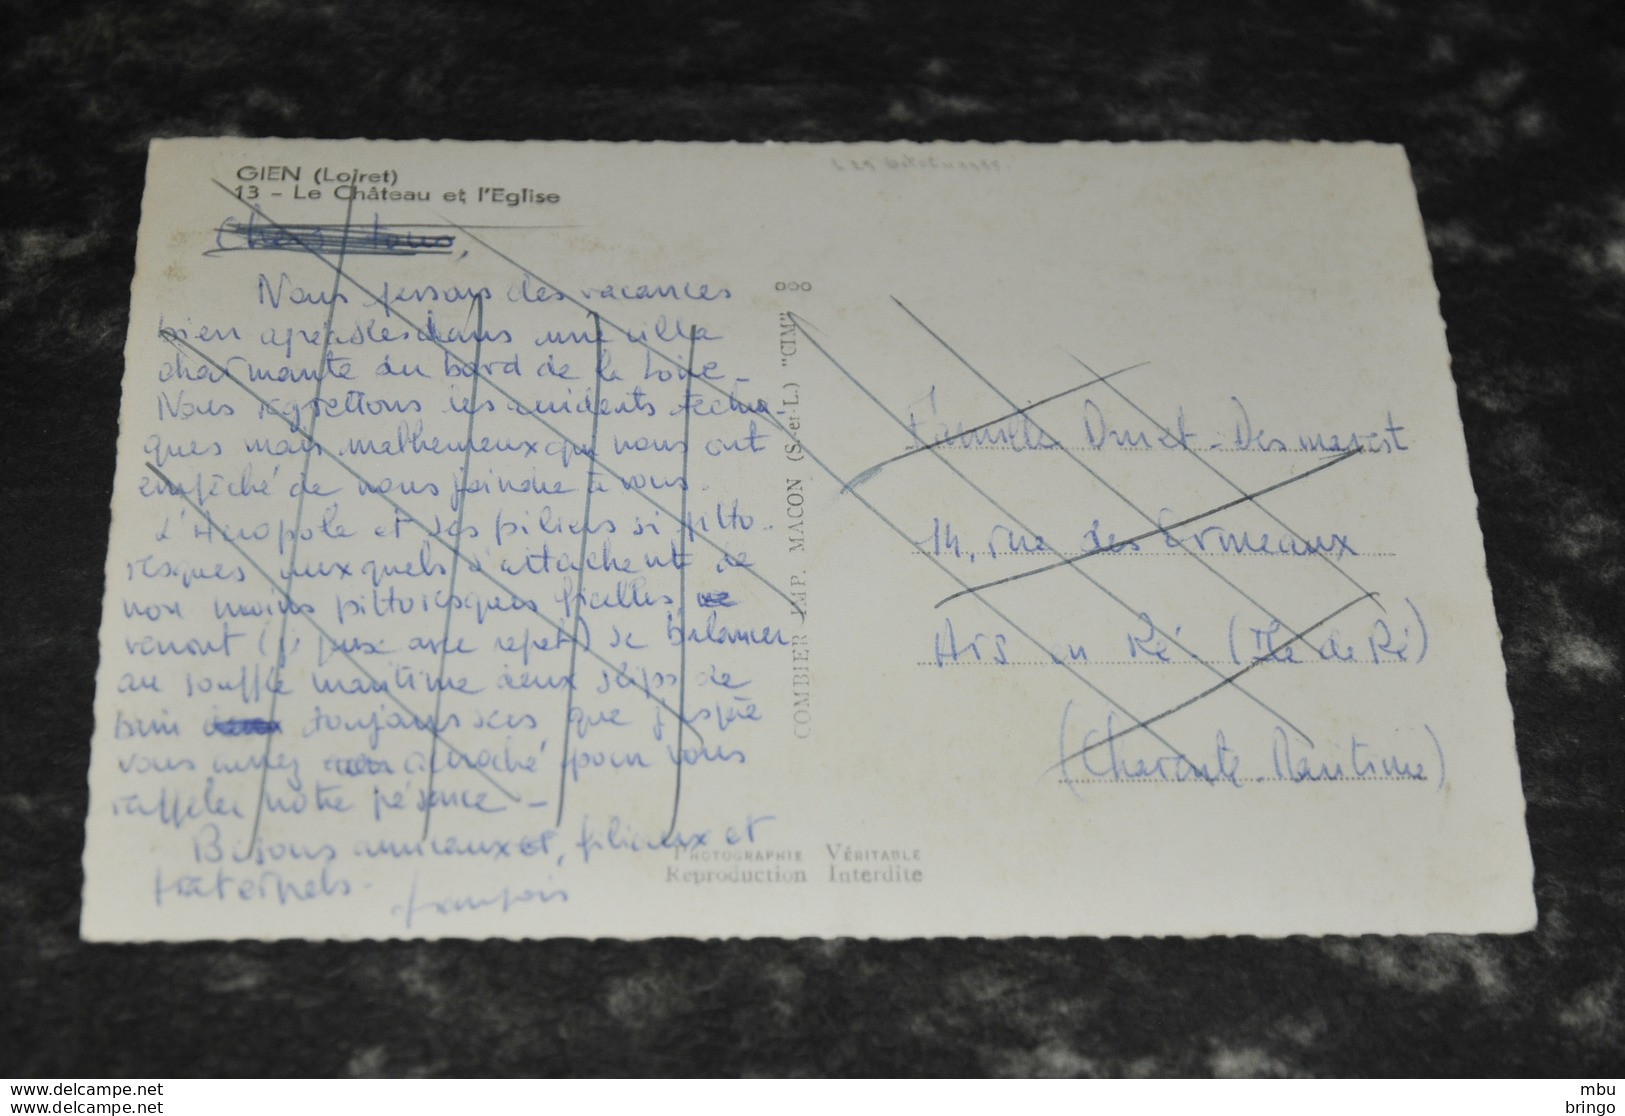 GIEN (Loiret)
13 - Le Château et l'Eglise
Chers tous,
Nous passons des vacances
bien agréables dans une villa
charmante au bord de la Loire_
Nous regrettons les incidents techni-
ques mais malheureux qui nous ont
empêché de nous joindre à vous.
L'Acropole et ses piliers si pitto-
resques auxquels s'attachent de
non moins pittoresques ficelles,
verront (je peux avec repet) se balancer
au souffle maritime deux slips de
bain toujours secs que j'espère
vous aurez accroché pour vous
rappeler notre présence_
Bisous amicaux et, filiaux et
fraternels.
françois
COMBIER IMP. MACON (S.-et-L.) "CIM"
PHOTOGRAPHIE VÉRITABLE
Reproduction Interdite
Famille Druet-Desmarest
14, rue des Ormeaux
Ars en Ré. (Ile de Ré)
(Charente-Maritime)
www.delcampe.net
www.delcampe.net
mbu
bringo